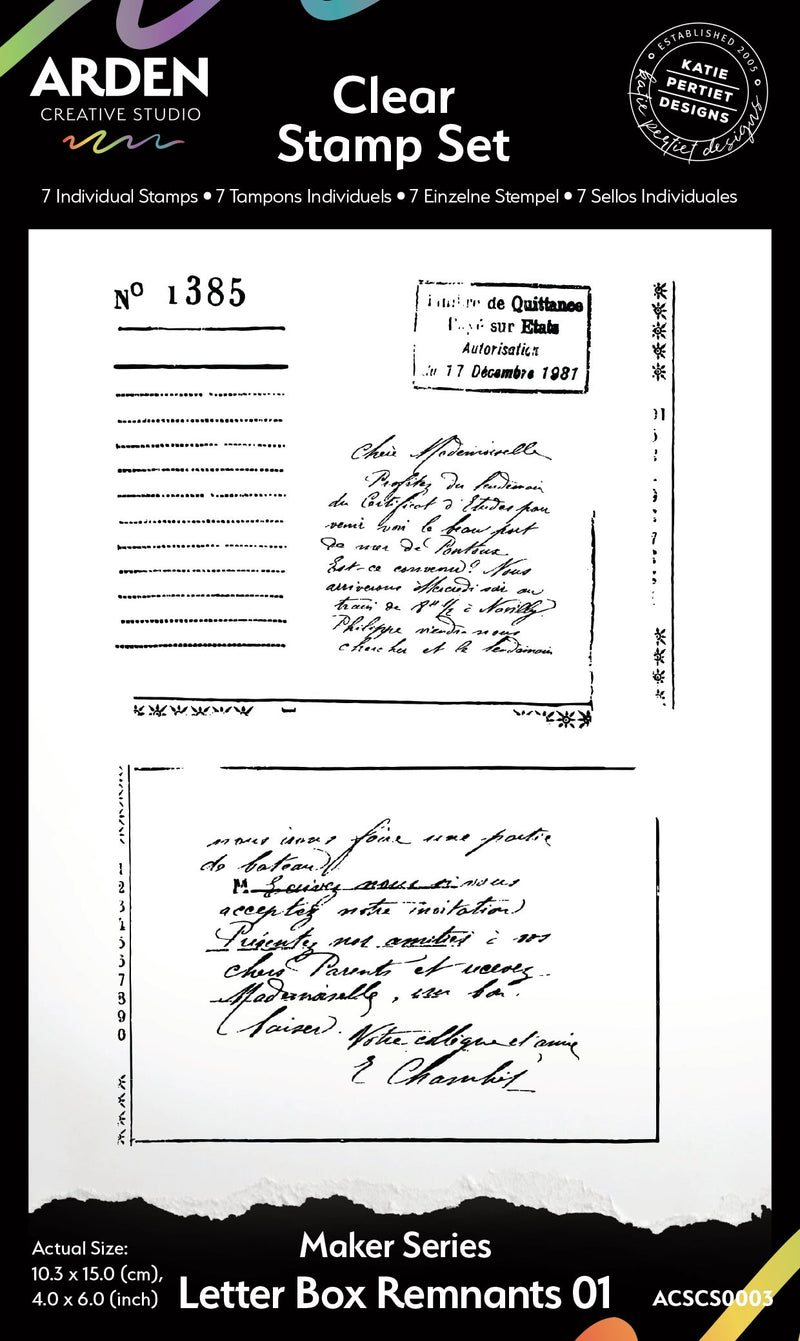 ARDEN
CREATIVE STUDIO
Clear
Stamp Set
ESTABLISHED 2005
KATIE
PERTIET
DESIGNS
katie pertiet designs
7 Individual Stamps • 7 Tampons Individuels • 7 Einzelne Stempel • 7 Sellos Individuales
Nº 1385
de Quittance
sur Etats
Autorisation
du 17 Décembre 1981
Chère Mademoiselle
Profitez du lendemain
du Certificat d'Etudes pour
venir voir le beau port
de mer de Pontoux
Est-ce convenu? Nous
arriverons Mercredi soir au
train de 8h 1/2 à Novilly.
Philippe viendra nous
chercher et le lendemain
nous irons faire une partie
de bateau.
M. Ecrivez nous si vous
acceptez notre invitation
Présentez nos amitiés à vos
chers Parents et recevez
Mademoiselle, un bon
baiser.
Votre collègue et amie
E Chambet
1
2
3
4
5
6
7
8
9
0
Actual Size:
10.3 x 15.0 (cm),
4.0 x 6.0 (inch)
Maker Series
Letter Box Remnants 01
ACSCS0003